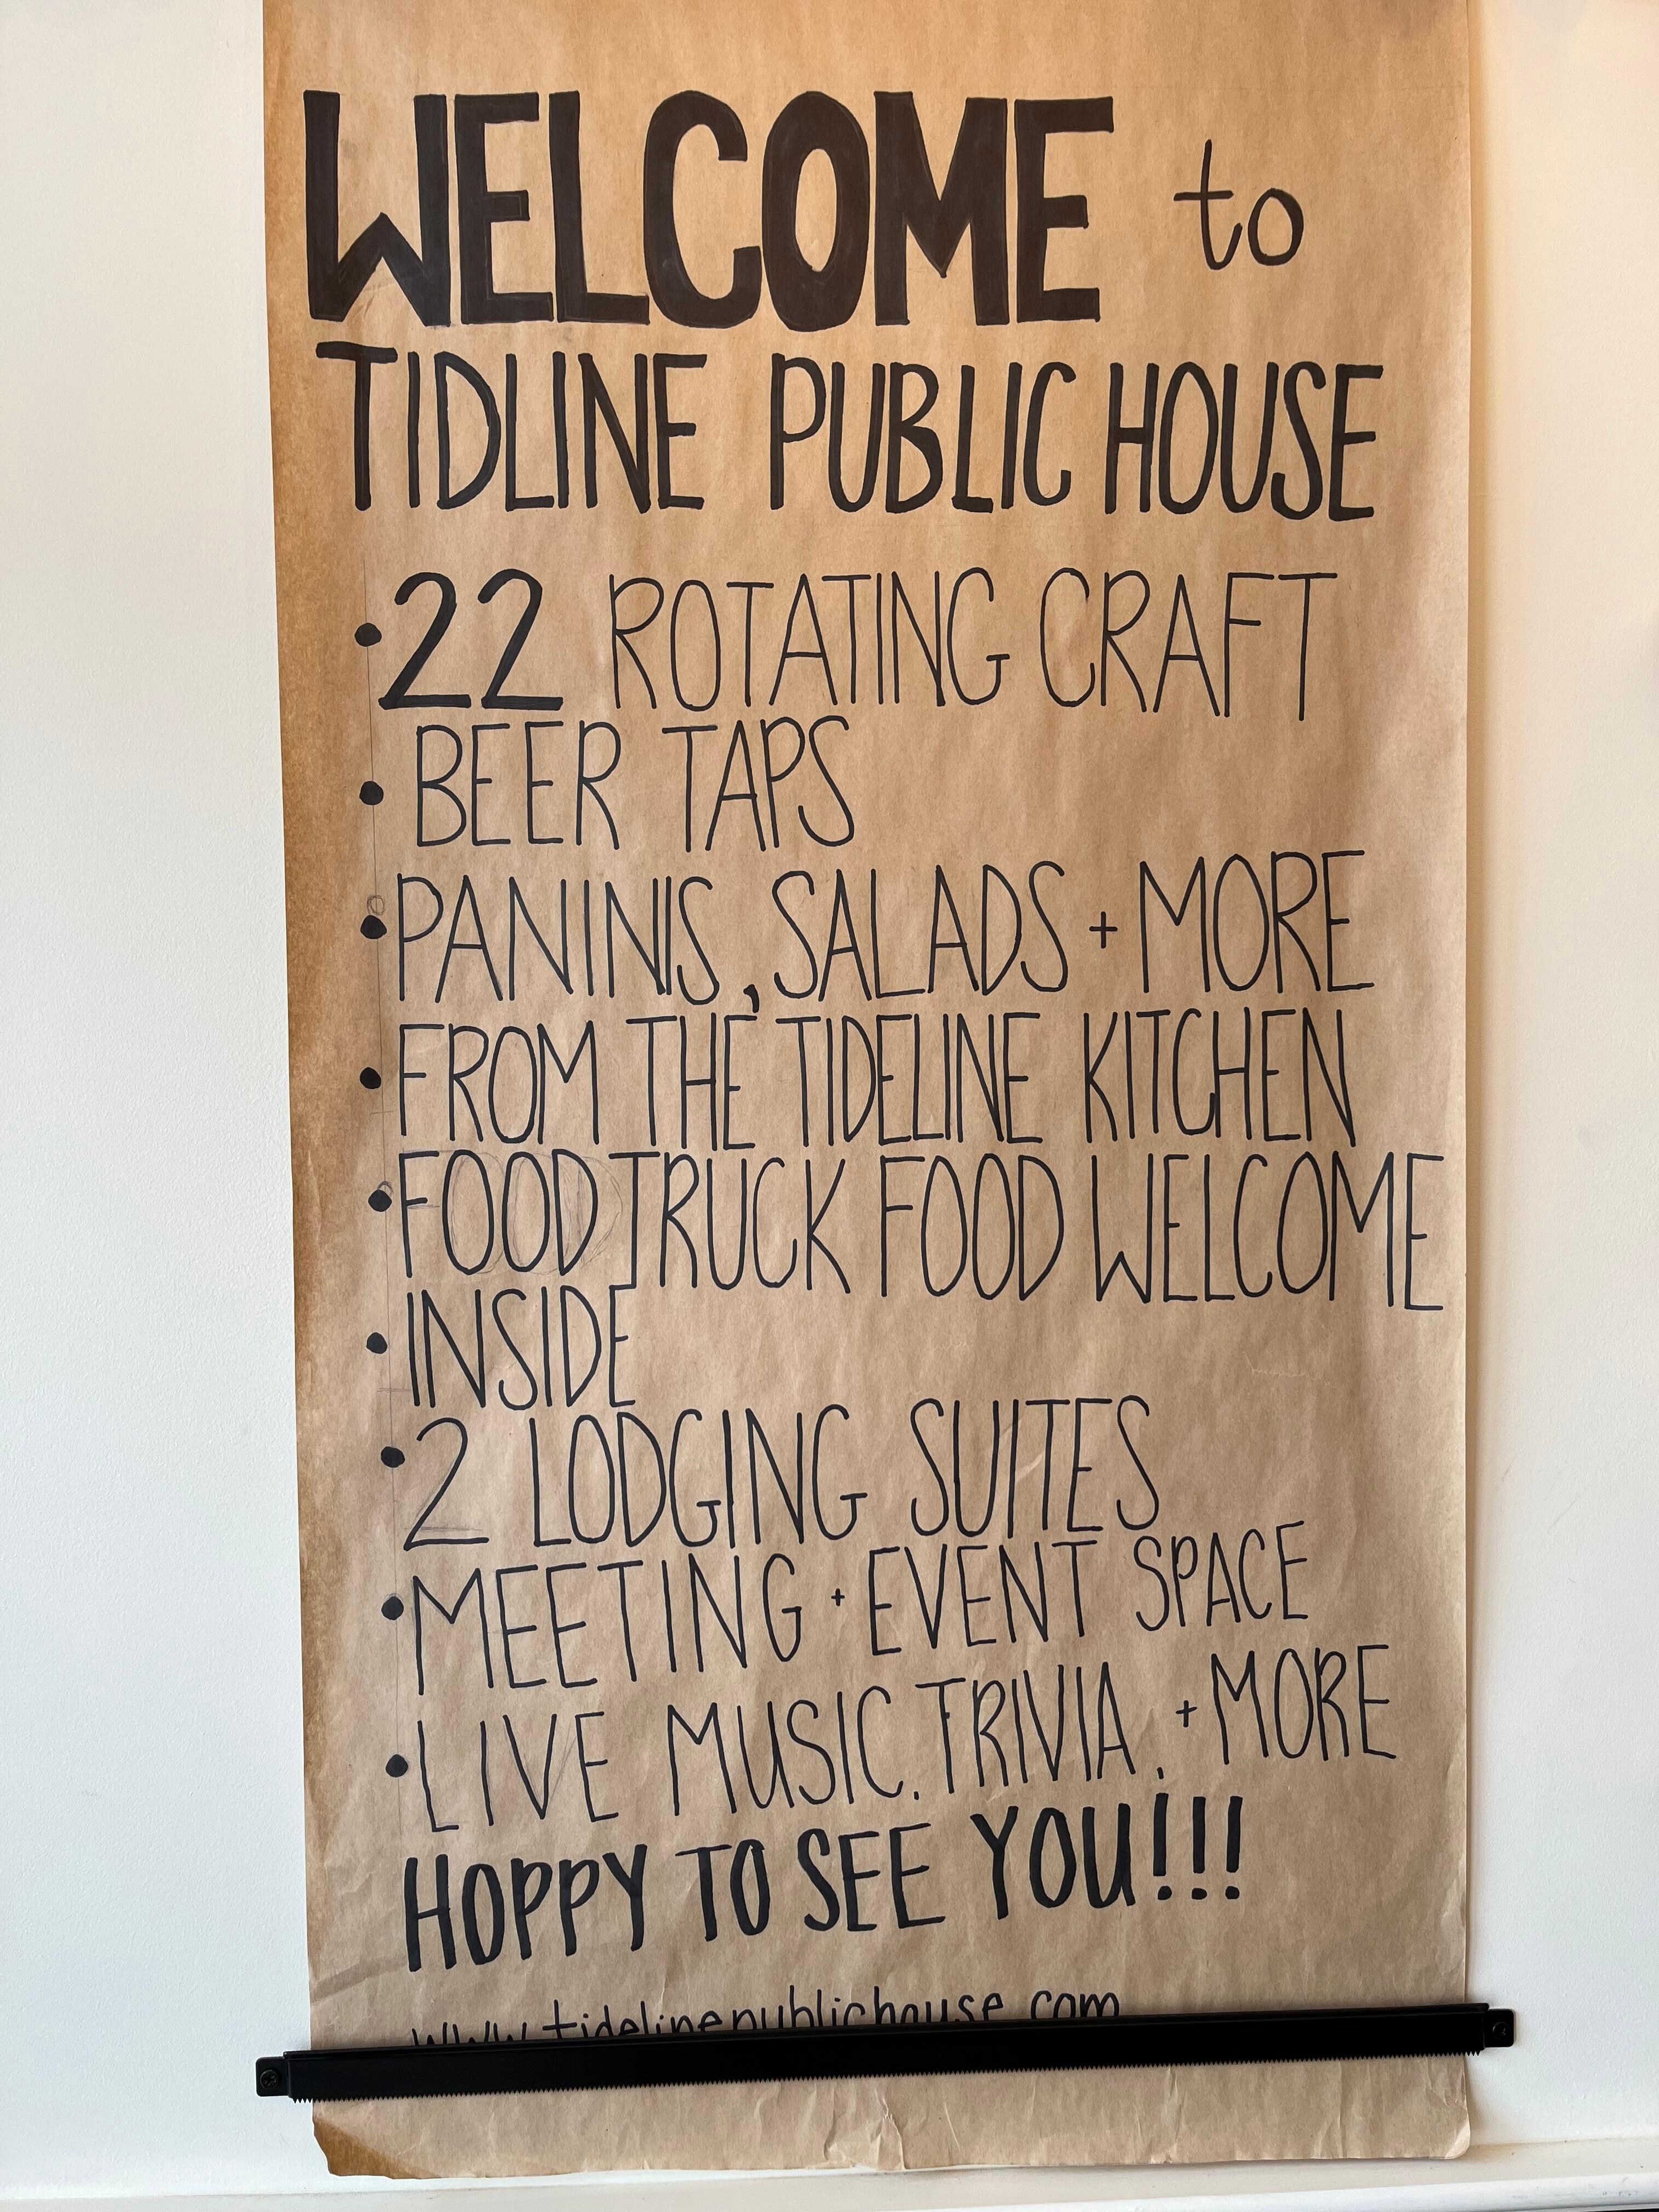 WELCOME to
TIDLINE PUBLIC HOUSE
•22 ROTATING CRAFT
• BEER TAPS
•PANINIS, SALADS + MORE
•FROM THE TIDELINE KITCHEN
•FOOD TRUCK FOOD WELCOME
•INSIDE
•2 LODGING SUITES
•MEETING + EVENT SPACE
•LIVE MUSIC, TRIVIA, + MORE
HOPPY TO SEE YOU!!!
www.tidelinepublichouse.com